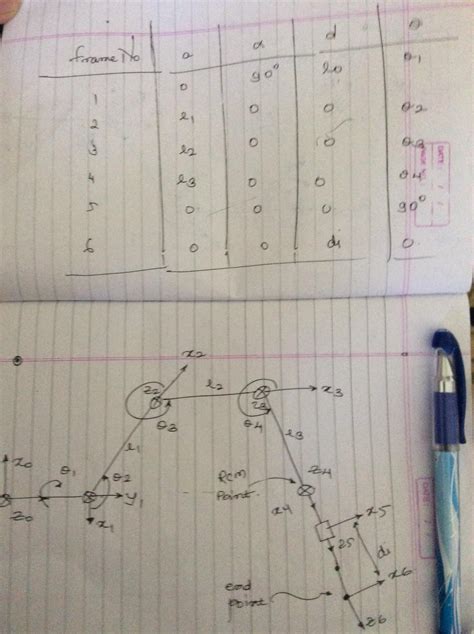 frame No a α d θ
1 0 90° l0 θ1
2 l1 0 0 θ2
3 l2 0 0 θ3
4 l3 0 0 θ4
5 0 0 0 90°
6 0 0 di 0
DATE: / /
x2
z2 l2 x3
z3
θ3 θ4
l1 l3
x0 θ1 θ2
RCM z4
point
z0 y1
x1 x4
x5
z5 di
x6
end
point
z6
DATE